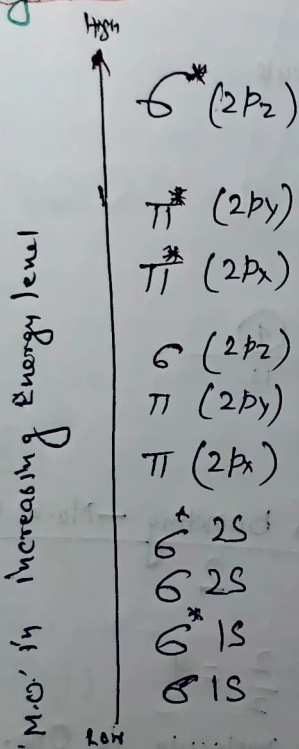 High
σ* (2pz)
π* (2py)
π* (2px)
σ (2pz)
π (2py)
π (2px)
σ* 2S
σ 2S
σ* 1S
σ 1S
Low
'M.O' in increasing Energy level